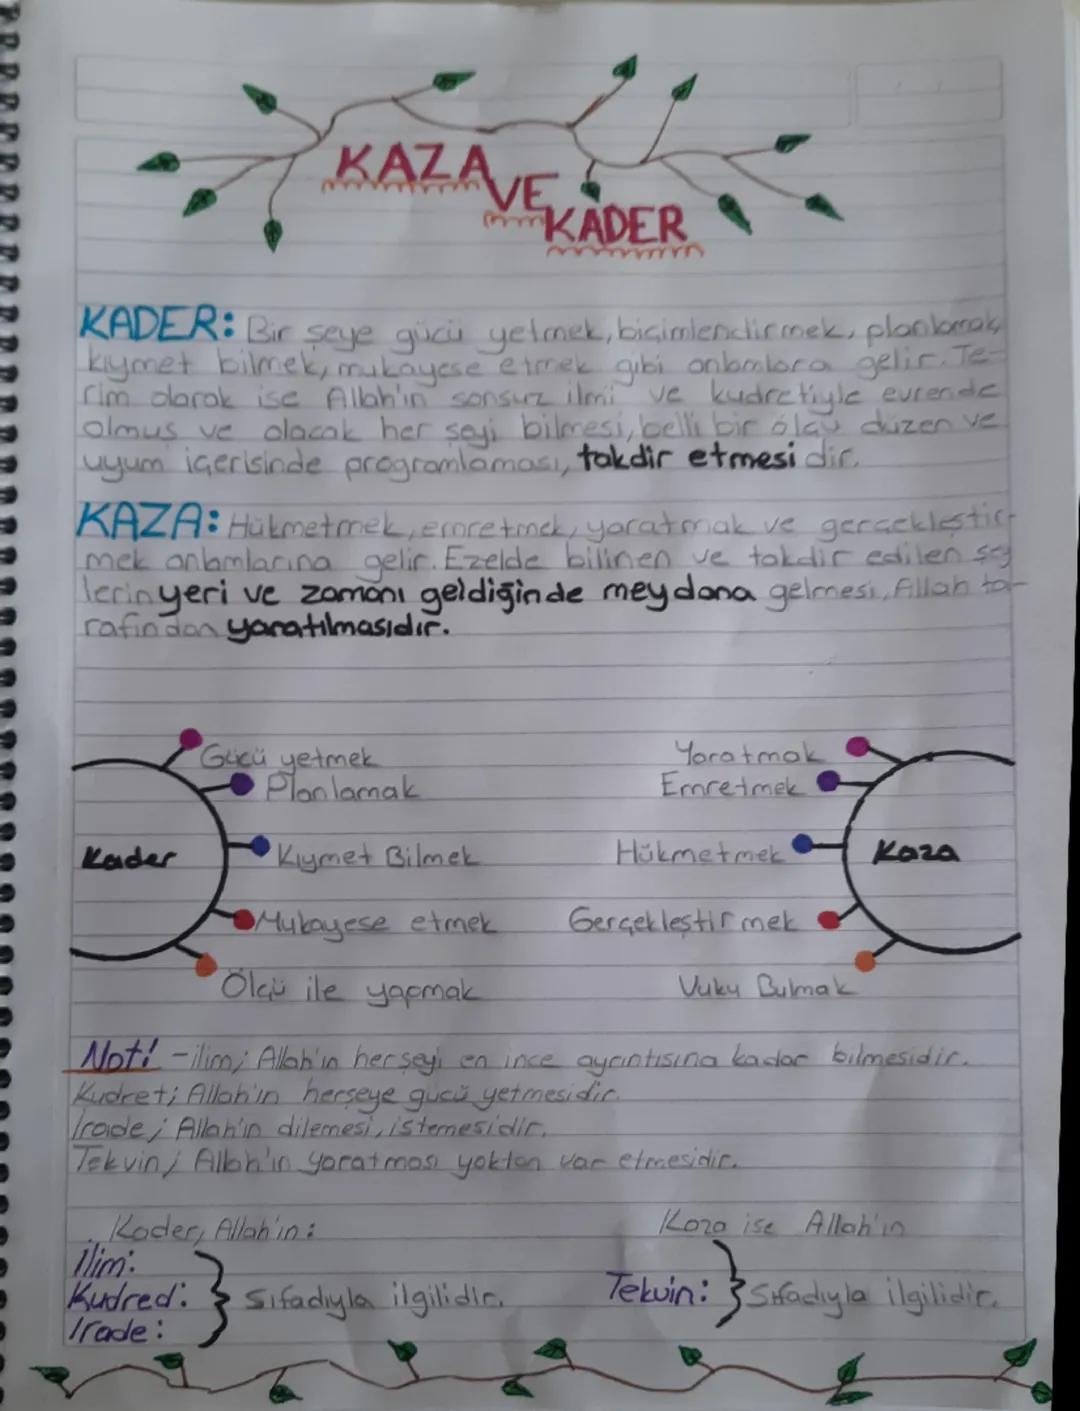 KAZA
VE
KADER
KADER: Bir şeye gücü yetmek, biçimlendirmek, planlamak,
kıymet bilmek, mukayese etmek gibi anlamlara gelir. Te-
rim olarak ise Allah'ın sonsuz ilmi ve kudretiyle evrende
olmuş ve olacak her şeyi bilmesi, belli bir ölçü, düzen ve
uyum içerisinde programlaması, takdir etmesidir.
KAZA: Hükmetmek, emretmek, yaratmak ve gerçekleştir-
mek anlamlarına gelir. Ezelde bilinen ve takdir edilen şey
lerin yeri ve zamanı geldiğinde meydana gelmesi, Allah ta-
rafından yaratılmasıdır.
Kader
Gücü yetmek
Planlamak
Kıymet Bilmek
Mukayese etmek
Ölçü ile yapmak
Kaza
Yaratmak
Emretmek
Hükmetmek
Gerçekleştirmek
Vuku Bulmak
Not! -ilim; Allah'ın herşeyi en ince ayrıntısına kadar bilmesidir.
Kudret; Allah'ın herşeye gücü yetmesidir.
İrade; Allah'ın dilemesi, istemesidir.
Tekvin; Allah'ın yaratması yoktan var etmesidir.
Kader, Allah'ın:
İlim:
Kudred:
İrade:
Sıfadıyla ilgilidir.
Kaza ise Allah'ın
Tekvin:
Sıfadıyla ilgilidir.